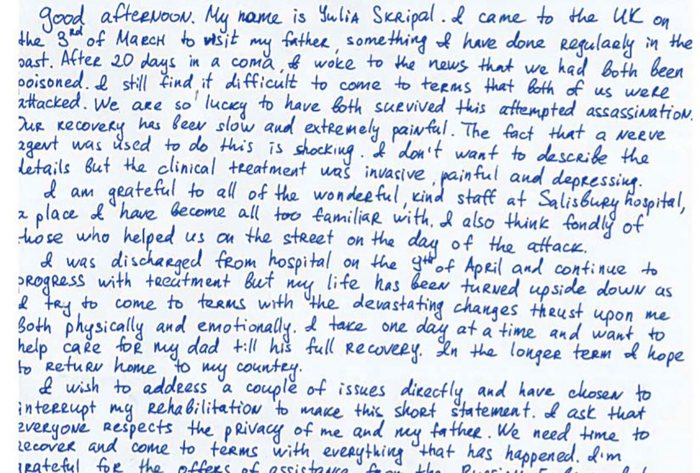 Good afternoon. My name is Yulia Skripal. I came to the UK on
the 3rd of March to visit my father, something I have done regularly in the
past. After 20 days in a coma, I woke to the news that we had both been
poisoned. I still find it difficult to come to terms that both of us were
attacked. We are so lucky to have both survived this attempted assassination.
Our recovery has been slow and extremely painful. The fact that a nerve
agent was used to do this is shocking. I don't want to describe the
details but the clinical treatment was invasive, painful and depressing.
I am grateful to all of the wonderful, kind staff at Salisbury hospital,
a place I have become all too familiar with. I also think fondly of
those who helped us on the street on the day of the attack.
I was discharged from hospital on the 9th of April and continue to
progress with treatment but my life has been turned upside down as
I try to come to terms with the devastating changes thrust upon me
both physically and emotionally. I take one day at a time and want to
help care for my dad till his full recovery. In the longer term I hope
to return home to my country.
I wish to address a couple of issues directly and have chosen to
interrupt my rehabilitation to make this short statement. I ask that
everyone respects the privacy of me and my father. We need time to
recover and come to terms with everything that has happened. I'm
grateful for the offers of assistance from the